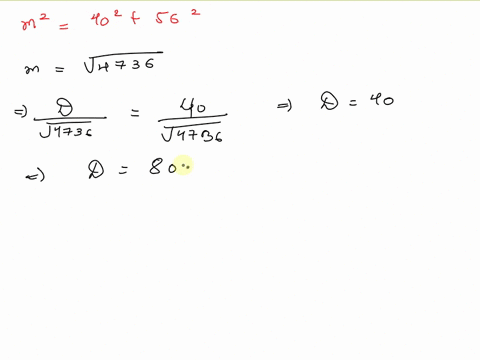 m² = 40² + 56²
m = √4736
⇒) D/√4736 = 40/√4736 ⇒) D = 40
⇒) D = 80